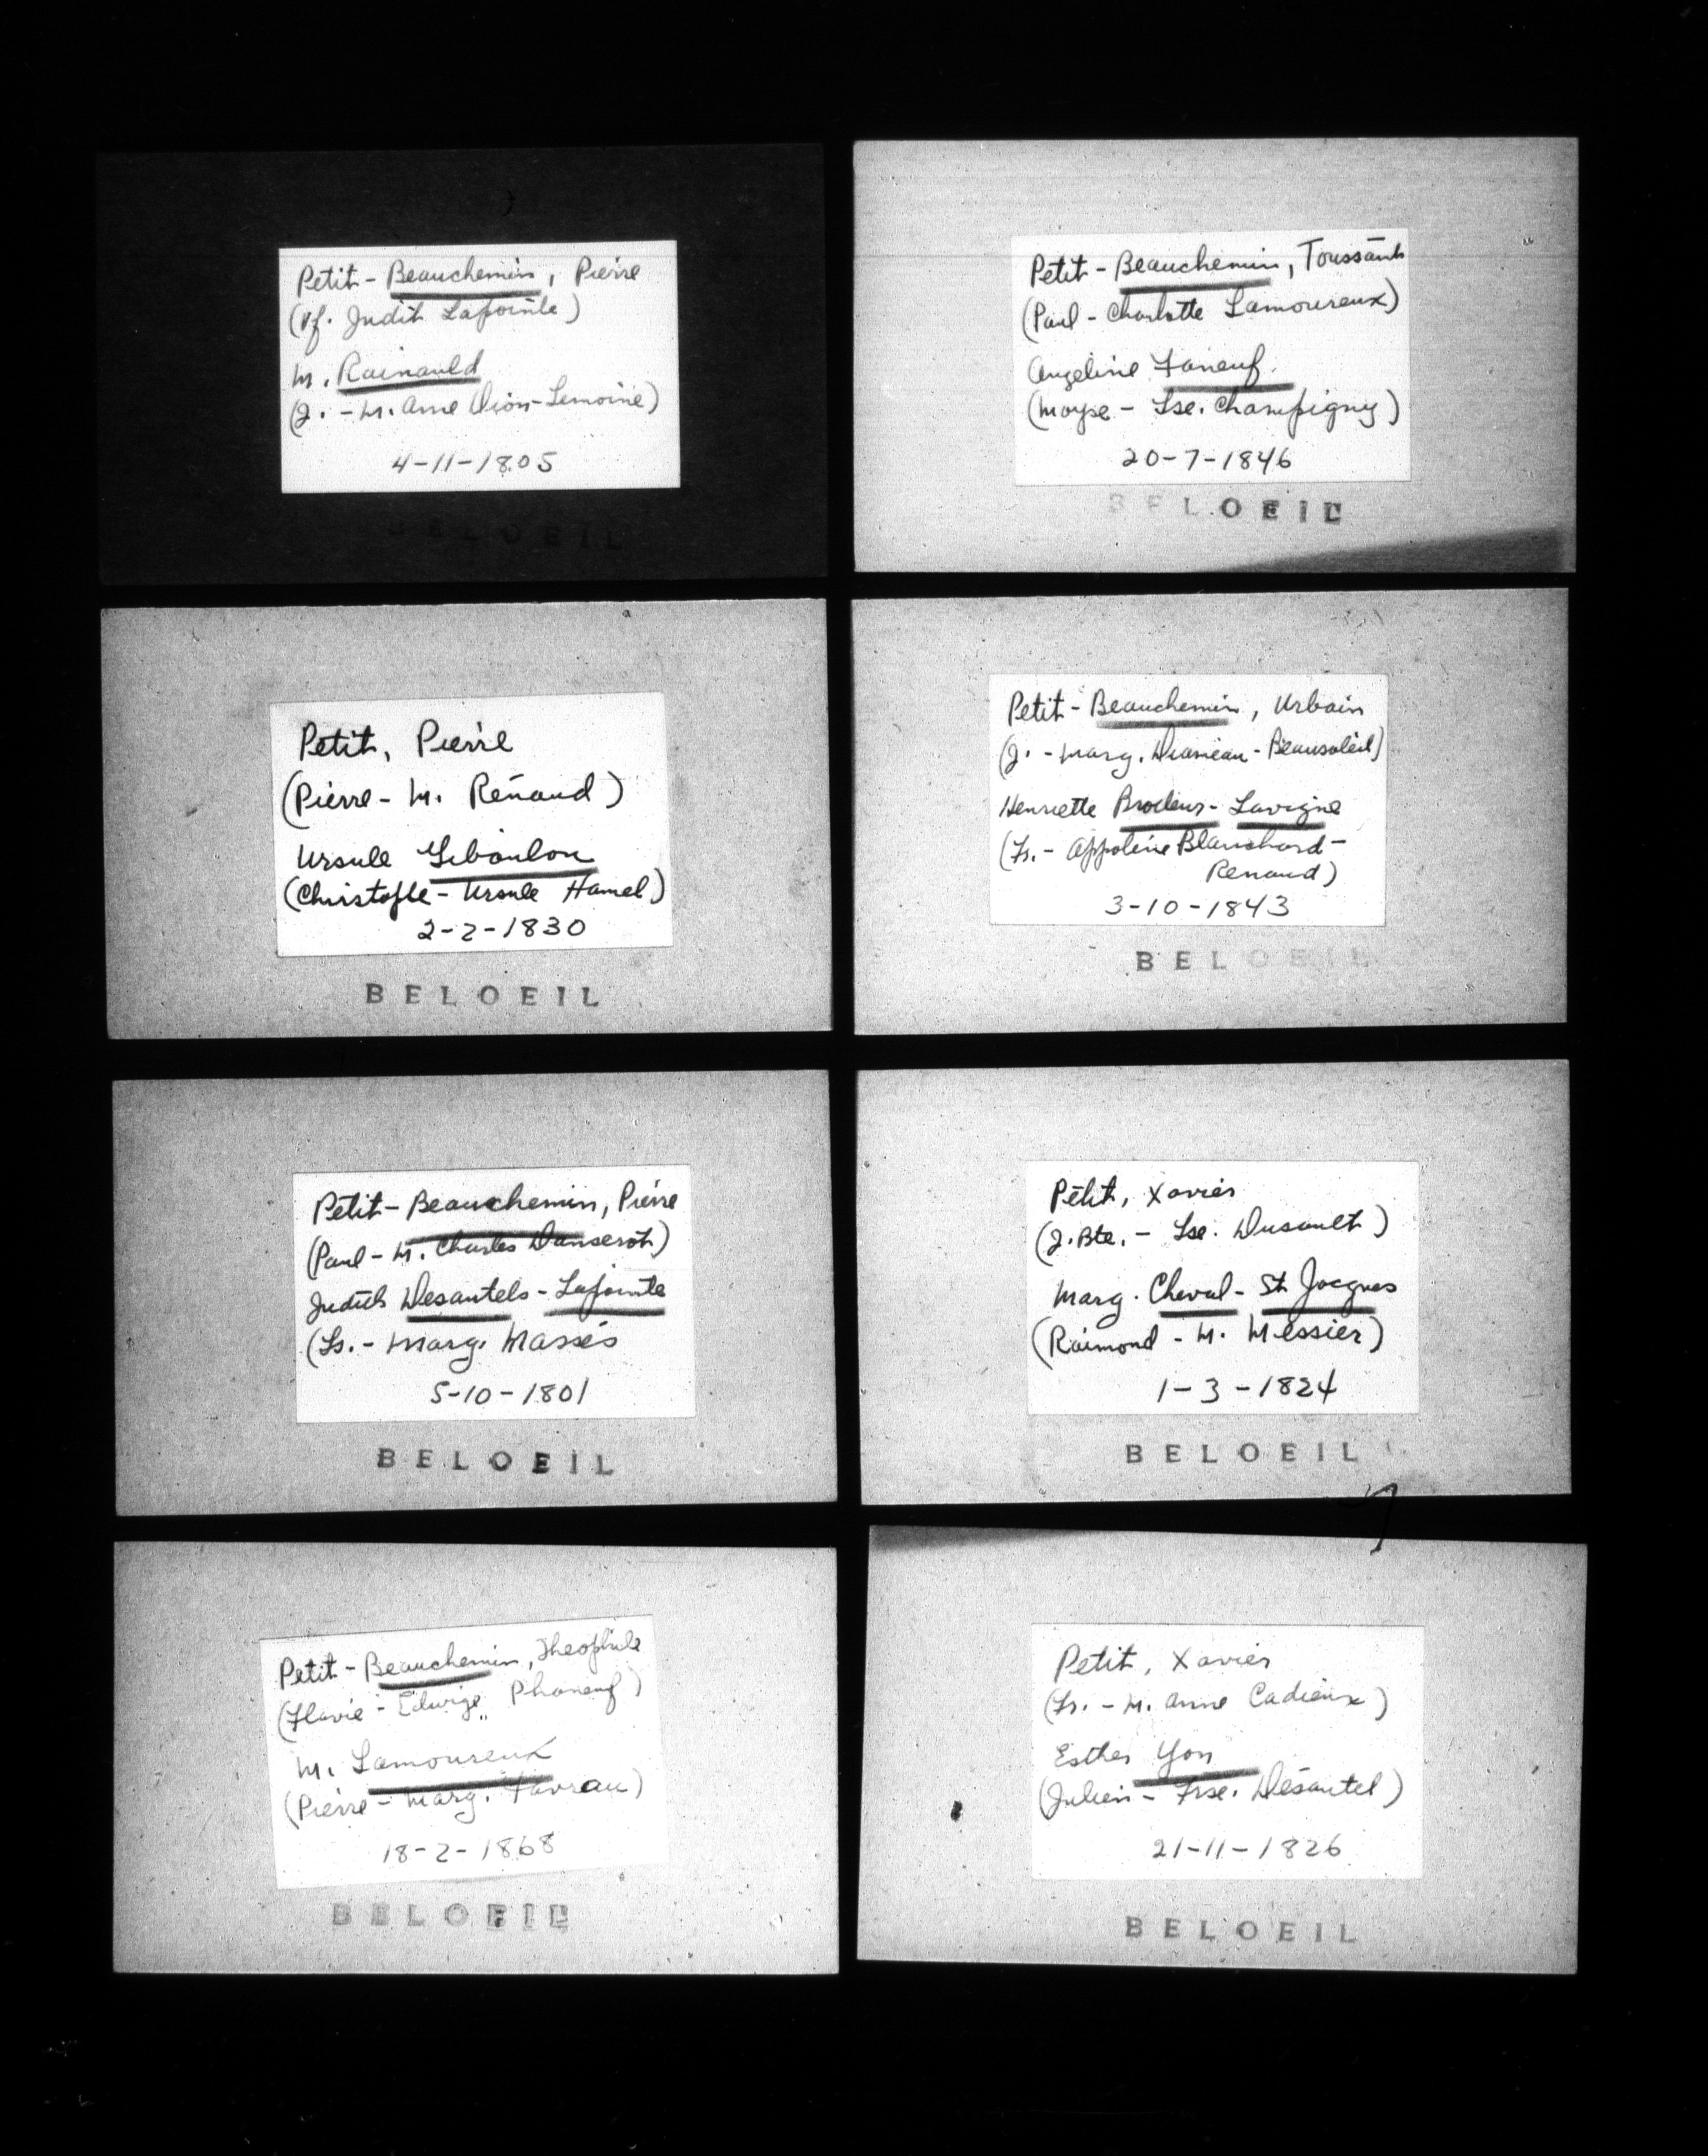 Petit-Beauchemin, Pierre
(Vf. Judit Lapointe)
M. Rainauld
(J. - M. Anne Dion-Lemoine)
4-11-1805
BELOEIL
Petit, Pierre
(Pierre - M. Renaud)
Ursule Giboulou
(Christofle - Ursule Hamel)
2-2-1830
BELOEIL
Petit-Beauchemin, Pierre
(Paul - M. Charles Danserot)
Judith Desautels-Lapointe
(Ls. - Marg. Massés
5-10-1801
BELOEIL
Petit-Beauchemin, Theophile
(Flavie - Edwige Phaneuf)
M. Lamoureux
(Pierre - Marg. Favreau)
18-2-1868
BELOEIL
Petit-Beauchemin, Toussant
(Paul - Charlotte Lamoureux)
Angeline Faneuf.
(Moyse - Lse. Champigny)
20-7-1846
BELOEIL
Petit-Beauchemin, Urbain
(J. - Marg. Beausoleil)
Henriette Brodeur-Lavigne
(Fr. - Appoline Blanchard-
Renaud)
3-10-1843
BELOEIL
Petit, Xavier
(J. Bte. - Lse. Dusault)
Marg. Cheval-St Jacques
(Raimond - M. Messier)
1-3-1824
BELOEIL
Petit, Xavier
(Fr. - M. Anne Cadieux)
Esther Yon
(Julien - Frse. Désautel)
21-11-1826
BELOEIL